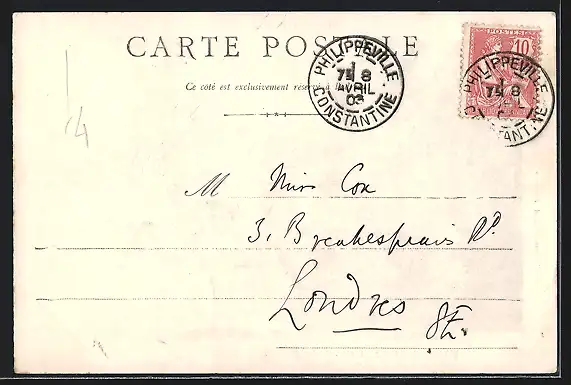 CARTE POSTALE
Ce côté est exclusivement réservé à
PHILIPPEVILLE
1
7E 8
AVRIL
03
CONSTANTINE
POSTES
10
PHILIPPEVILLE
1
7E 8
CONSTANTINE
14
M Miss Cox
3, Breakespears Rd
Londres
SE.